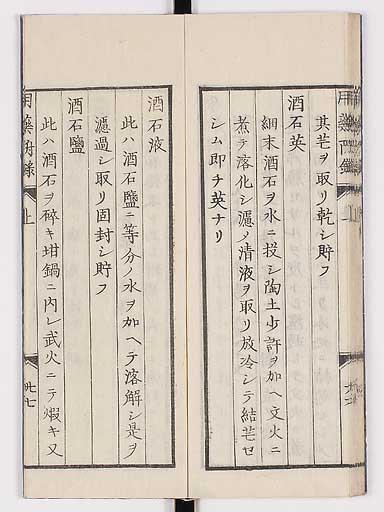 其芒ヲ取リ乾シ貯フ
酒石英
細末酒石ヲ水ニ投シ陶土少許ヲ加ヘ文火ニ
煮テ溶化シ濾メ清液ヲ取リ放冷シテ結芒セ
シム即チ英ナリ
酒石液
此ハ酒石鹽ニ等分ノ水ヲ加ヘテ溶解シ是ヲ
濾過シ取リ固封シ貯フ
酒石鹽
此ハ酒石ヲ碎キ坩鍋ニ内レ武火ニテ煆キ又
用藥附錄
上
卅七